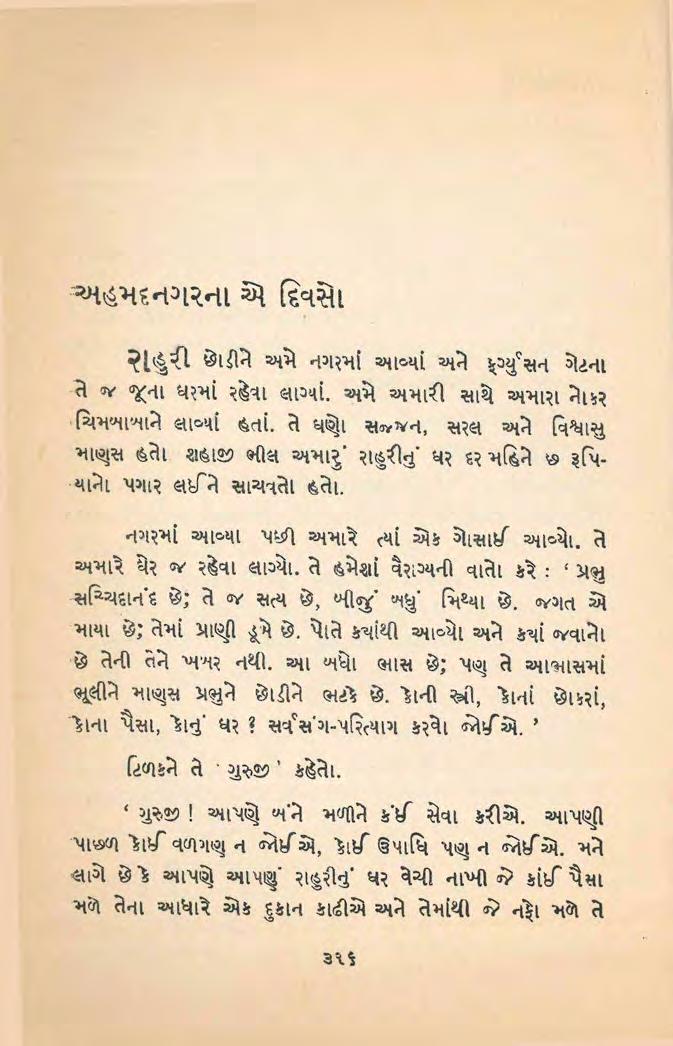 અહમદનગરના એ દિવસો
રાહુરી છોડીને અમે નગરમાં આવ્યાં અને ફર્ગ્યુસન ગેટના
તે જ જૂના ઘરમાં રહેવા લાગ્યાં. અમે અમારી સાથે અમારા નોકર
ચિમબાબાને લાવ્યાં હતાં. તે ઘણો સજ્જન, સરલ અને વિશ્વાસુ
માણસ હતો. શહાજી ભીલ અમારું રાહુરીનું ઘર દર મહિને ૭ રૂપિ-
યાનો પગાર લઈને સાચવતો હતો.
નગરમાં આવ્યા પછી અમારે ત્યાં એક ગોસાઈ આવ્યો. તે
અમારે ઘેર જ રહેવા લાગ્યો. તે હમેશાં વૈરાગ્યની વાતો કરે : ‘ પ્રભુ
સચ્ચિદાનંદ છે; તે જ સત્ય છે, બીજું બધું મિથ્યા છે. જગત એ
માયા છે; તેમાં પ્રાણી ડૂબે છે. પોતે કયાંથી આવ્યો અને કયાં જવાનો
છે તેની તેને ખબર નથી. આ બધો ભાસ છે; પણ તે આભાસમાં
ભૂલીને માણસ પ્રભુને છોડીને ભટકે છે. કોની સ્ત્રી, કોનાં છોકરાં,
કોના પૈસા, કોનું ઘર ? સર્વસંગ-પરિત્યાગ કરવો જોઈએ. ’
ટિળકને તે ‘ ગુરુજી ’ કહેતો.
‘ ગુરુજી ! આપણે બંને મળીને કંઈ સેવા કરીએ. આપણી
પાછળ કોઈ વળગણ ન જોઈએ, કોઈ ઉપાધિ પણ ન જોઈએ. મને
લાગે છે કે આપણે આપણું રાહુરીનું ઘર વેચી નાખી જે કાંઈ પૈસા
મળે તેના આધારે એક દુકાન કાઢીએ અને તેમાંથી જે નફો મળે તે
૩૧૬